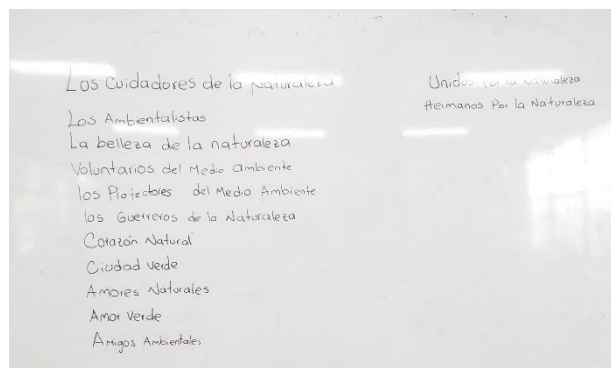 Los Cuidadores de la Naturaleza
Los Ambientalistas
La belleza de la naturaleza
Voluntarios del Medio ambiente
los Protectores del Medio Ambiente
los Guerreros de la Naturaleza
Corazón Natural
Ciudad verde
Amores Naturales
Amor Verde
Amigos Ambientales
Unidos por la naturaleza
Hermanos Por la Naturaleza